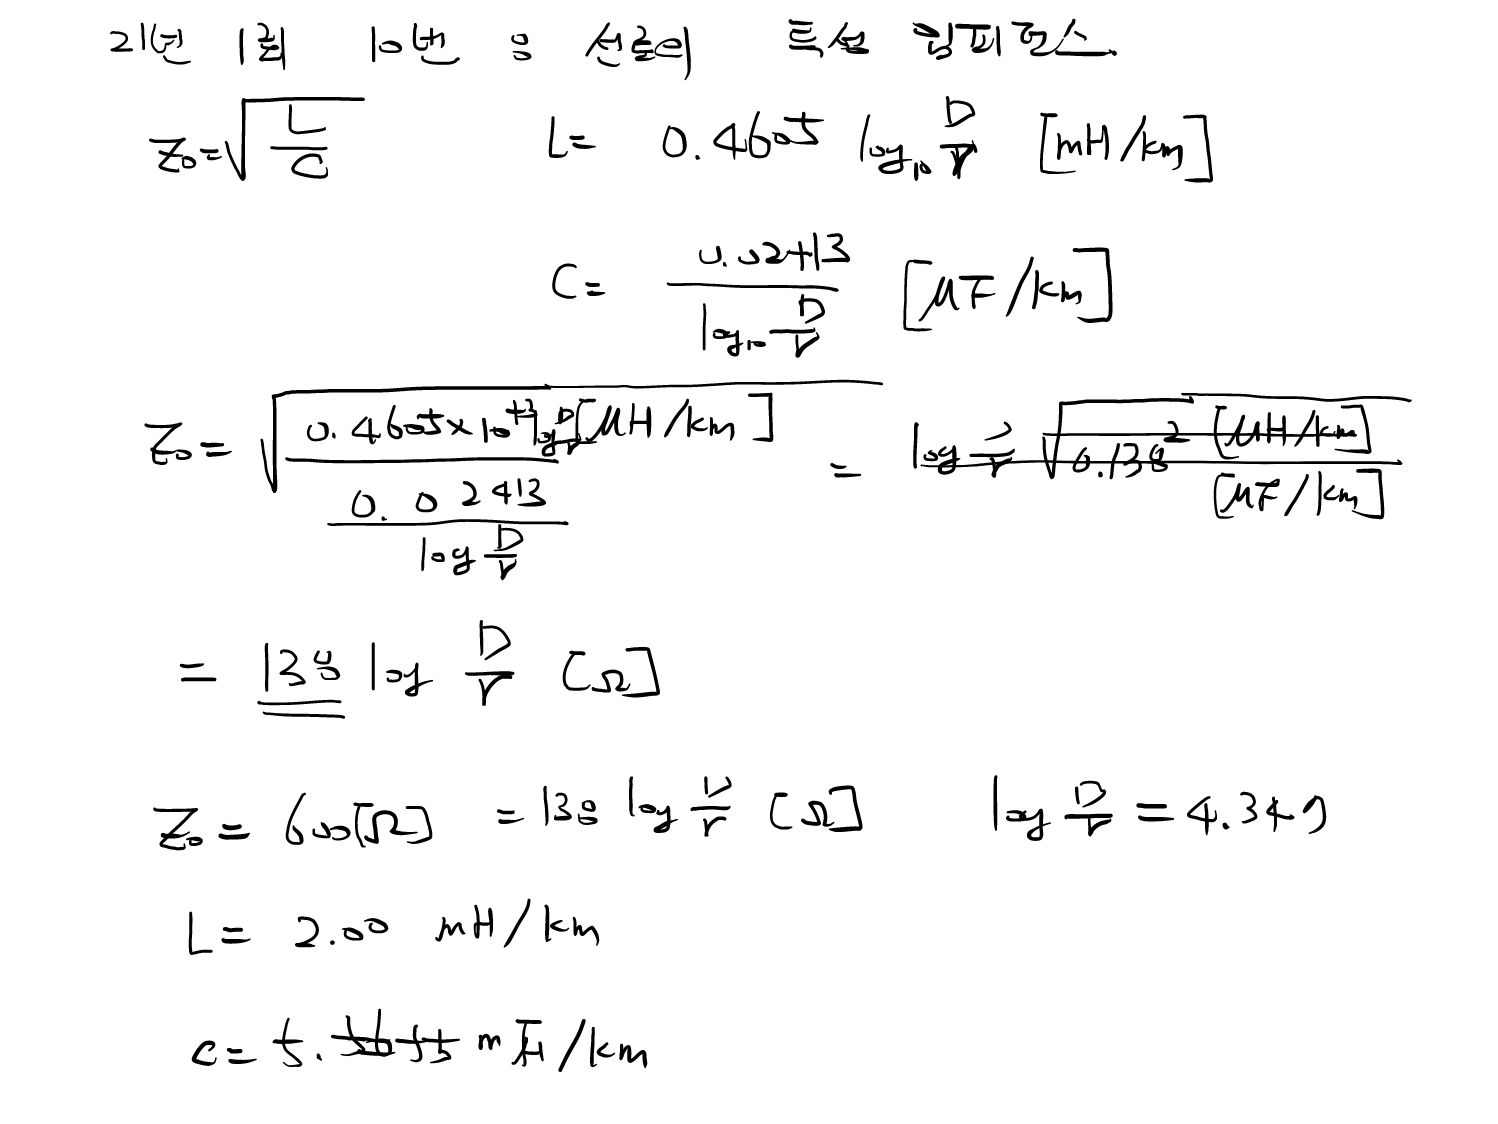 21년 1회 10번 은 선로의 특성 임피던스.
Z₀=√(L/C) L= 0.4605 log₁₀ D/r [mH/km]
C= 0.02413 / log₁₀ D/r [μF/km]
Z₀= √(0.4605×10⁺³ log D/r [μH/km] / (0.02413 / log D/r)) = log D/r √(0.138² [μH/km] / [μF/km])
= 138 log D/r [Ω]
Z₀= 600[Ω] =138 log D/r [Ω] log D/r = 4.349
L= 2.00 mH/km
c= 5. m /km